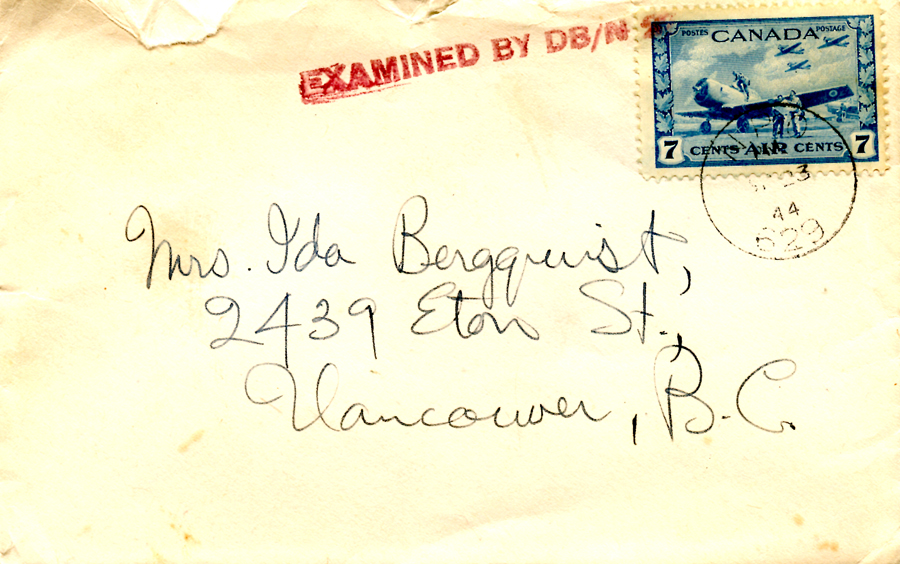 EXAMINED BY DB/N
POSTES CANADA POSTAGE
7 CENTS AIR CENTS 7
23
44
629
Mrs. Ida Bergquist,
2439 Eton St.,
Vancouver, B.C.